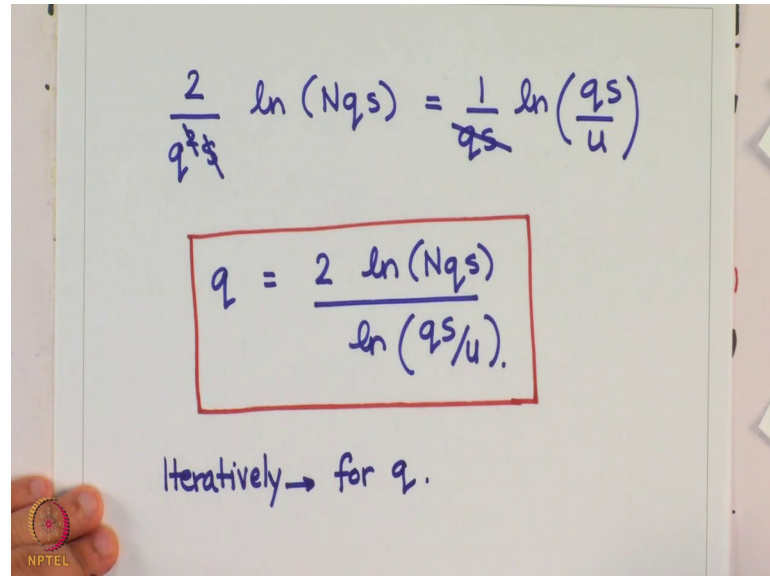 2/q²s ln (Nqs) = 1/qs ln (qs/u)
q = 2 ln (Nqs) / ln (qs/u).
Iteratively → for q.
NPTEL